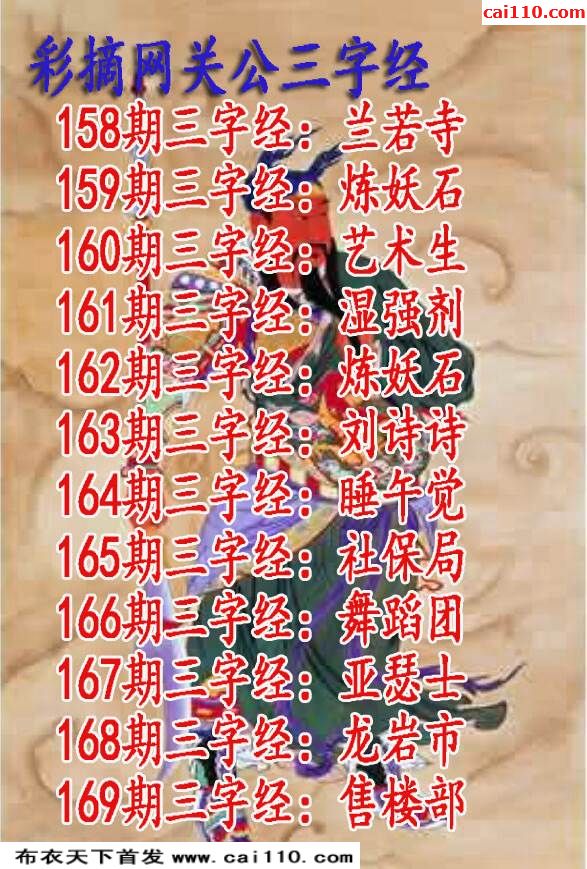 cai110.com
彩摘网关公三字经
158期三字经：兰若寺
159期三字经：炼妖石
160期三字经：艺术生
161期三字经：湿强剂
162期三字经：炼妖石
163期三字经：刘诗诗
164期三字经：睡午觉
165期三字经：社保局
166期三字经：舞蹈团
167期三字经：亚瑟士
168期三字经：龙岩市
169期三字经：售楼部
布衣天下首发 www.cai110.com